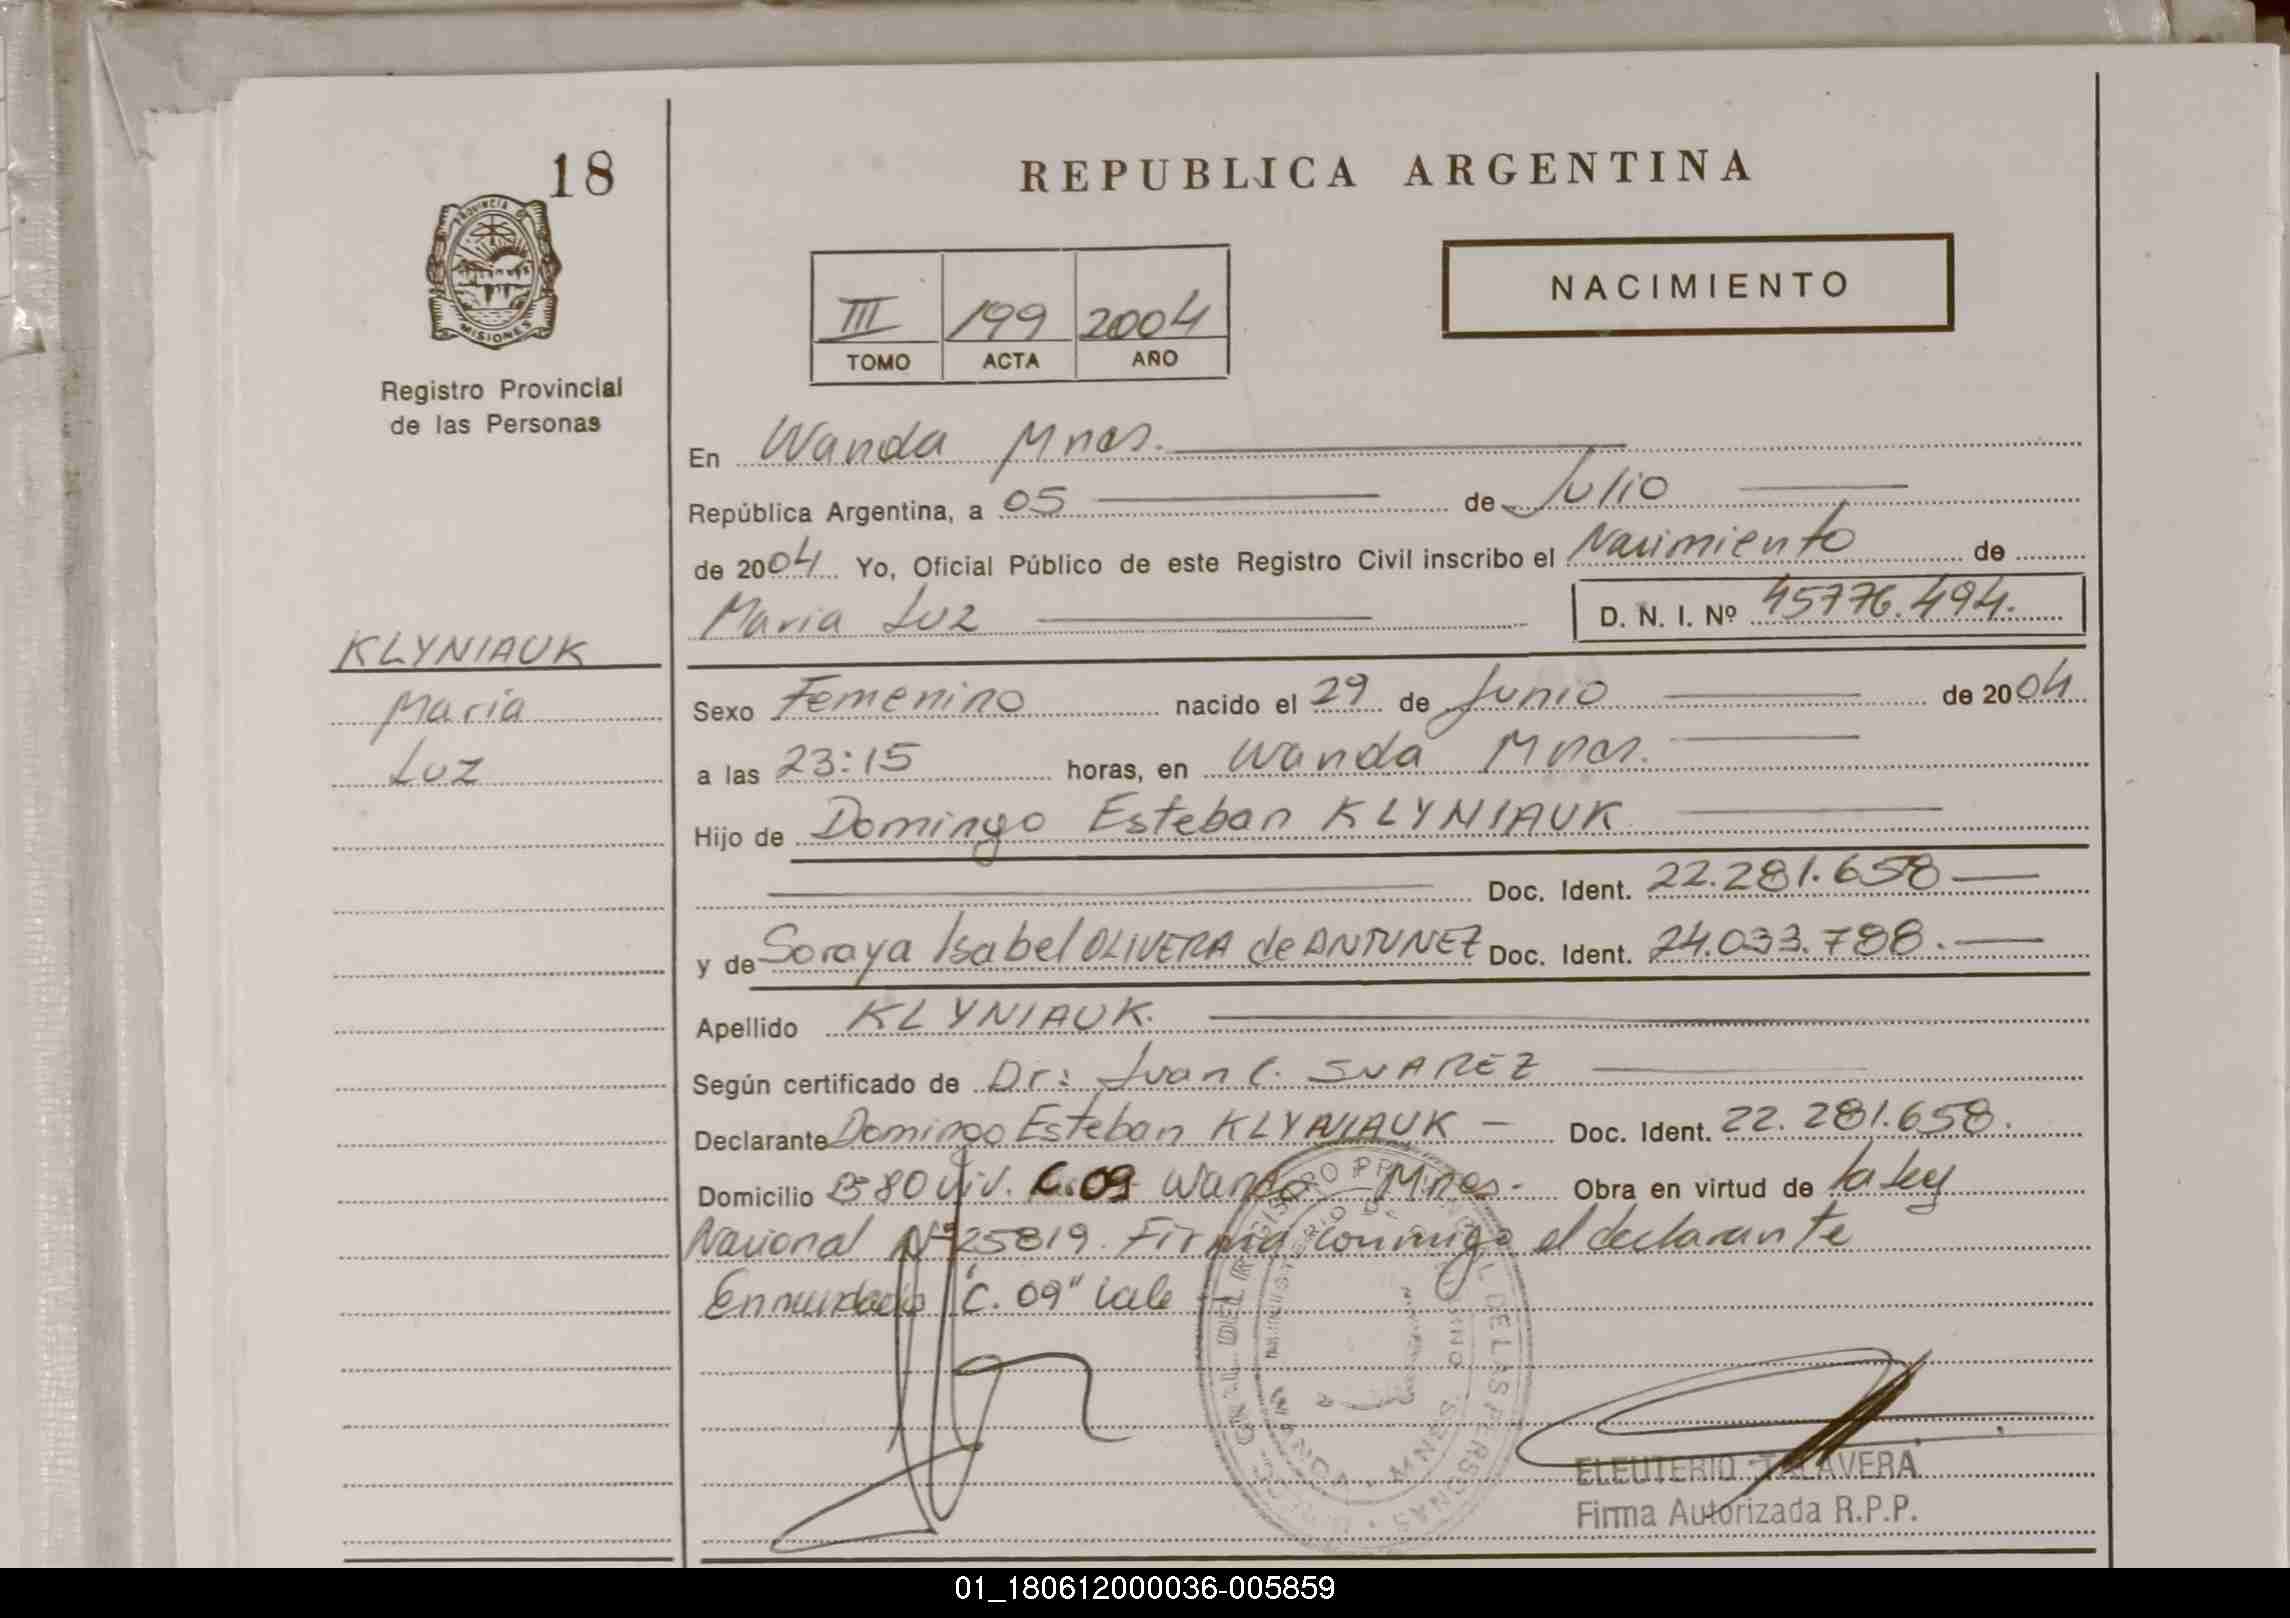 18
PROVINCIA DE
MISIONES
Registro Provincial
de las Personas
KLYNIAUK
Maria
Luz
REPUBLICA ARGENTINA
NACIMIENTO
III 199 2004
TOMO ACTA AÑO
En Wanda Mnes.
República Argentina, a 05 de Julio
de 2004 Yo, Oficial Público de este Registro Civil inscribo el Nacimiento de
Maria Luz D. N. I. Nº 45776.494.
Sexo Femenino nacido el 29 de Junio de 2004
a las 23:15 horas, en Wanda Mnes.
Hijo de Domingo Esteban KLYNIAUK
Doc. Ident. 22.281.658
y de Soraya Isabel OLIVERA de ANTUNEZ Doc. Ident. 24.033.788.
Apellido KLYNIAUK.
Según certificado de Dr: Juan C. SUAREZ
Declarante Domingo Esteban KLYNIAUK Doc. Ident. 22.281.658.
Domicilio B-80 Viv. C.09 Wanda Mnes. Obra en virtud de la ley
Nacional Nº 25819. Firma conmigo el declarante
Enmendado "C. 09" vale
ELEUTERIO TALAVERA
Firma Autorizada R.P.P.
01_180612000036-005859